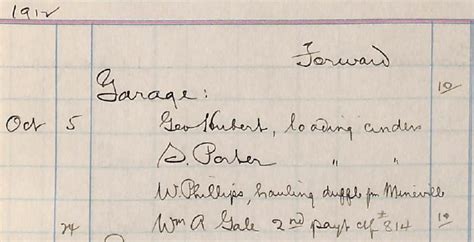 1912
Forward
Garage: 10
Oct 5 Geo Hubert, loading cinders
S. Porter " "
W. Phillips, hauling duffle fm Mineville
24 Wm A Gale 2nd payt a/f #814 10